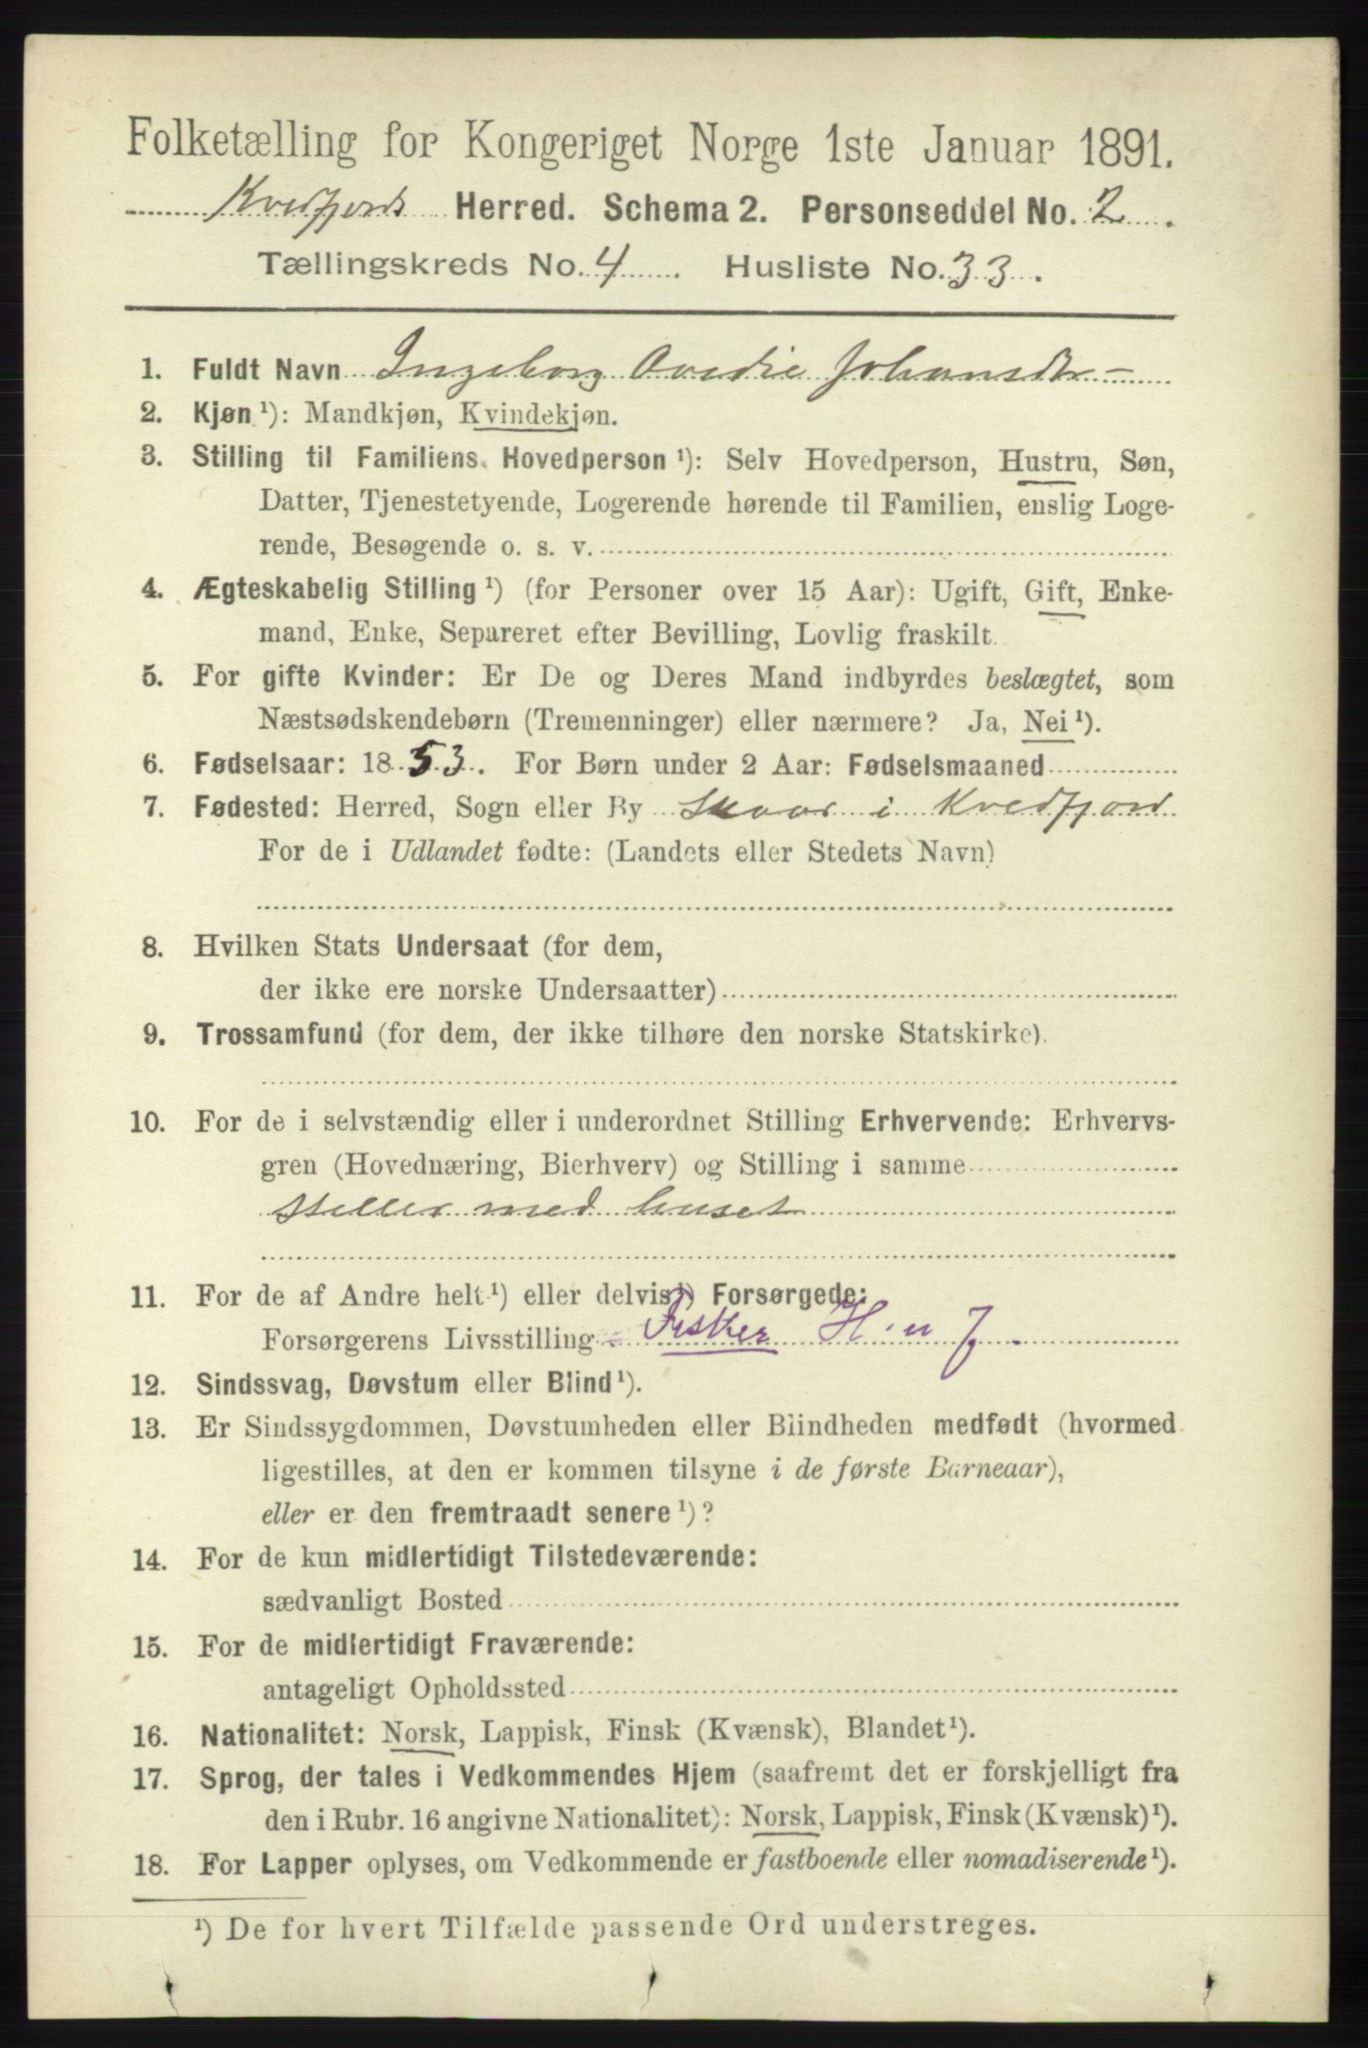 Folketælling for Kongeriget Norge 1ste Januar 1891.
Kvedfjords Herred. Schema 2. Personseddel No. 2.
Tællingskreds No. 4. Husliste No. 33.
1. Fuldt Navn Ingeborg Ovedie Johansdtr
2. Kjøn ¹): Mandkjøn, Kvindekjøn.
3. Stilling til Familiens Hovedperson ¹): Selv Hovedperson, Hustru, Søn,
Datter, Tjenestetyende, Logerende hørende til Familien, enslig Loge-
rende, Besøgende o. s. v.
4. Ægteskabelig Stilling ¹) (for Personer over 15 Aar): Ugift, Gift, Enke-
mand, Enke, Separeret efter Bevilling, Lovlig fraskilt.
5. For gifte Kvinder: Er De og Deres Mand indbyrdes beslægtet, som
Næstsødskendebørn (Tremenninger) eller nærmere? Ja, Nei ¹).
6. Fødselsaar: 1853. For Børn under 2 Aar: Fødselsmaaned
7. Fødested: Herred, Sogn eller By i Kvedfjord
For de i Udlandet fødte: (Landets eller Stedets Navn)
8. Hvilken Stats Undersaat (for dem,
der ikke ere norske Undersaatter)
9. Trossamfund (for dem, der ikke tilhøre den norske Statskirke).
10. For de i selvstændig eller i underordnet Stilling Erhvervende: Erhvervs-
gren (Hovednæring, Bierhverv) og Stilling i samme
steller med huset
11. For de af Andre helt ¹) eller delvis ¹) Forsørgede:
Forsørgerens Livsstilling Fisker H. u J.
12. Sindssvag, Døvstum eller Blind ¹).
13. Er Sindssygdommen, Døvstumheden eller Blindheden medfødt (hvormed
ligestilles, at den er kommen tilsyne i de første Barneaar),
eller er den fremtraadt senere ¹)?
14. For de kun midlertidigt Tilstedeværende:
sædvanligt Bosted
15. For de midlertidigt Fraværende:
antageligt Opholdssted
16. Nationalitet: Norsk, Lappisk, Finsk (Kvænsk), Blandet ¹).
17. Sprog, der tales i Vedkommendes Hjem (saafremt det er forskjelligt fra
den i Rubr. 16 angivne Nationalitet): Norsk, Lappisk, Finsk (Kvænsk) ¹).
18. For Lapper oplyses, om Vedkommende er fastboende eller nomadiserende ¹).
¹) De for hvert Tilfælde passende Ord understreges.